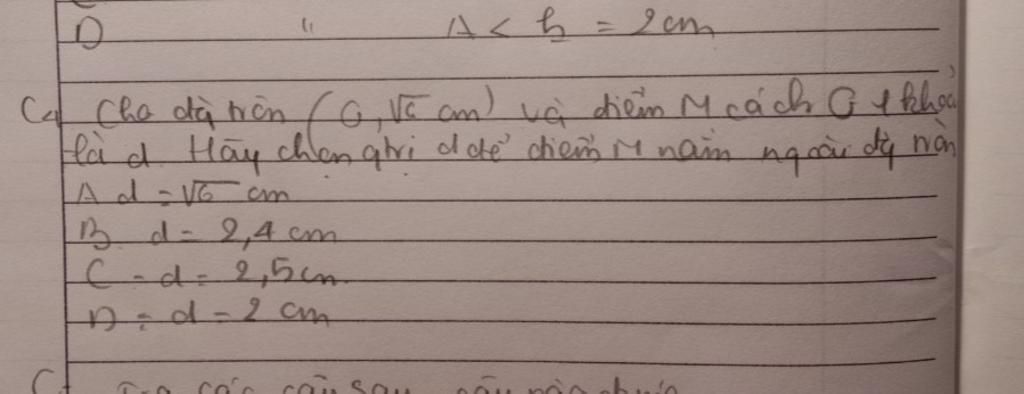 D " A < h = 2cm
C4 Cho đg tròn (O, √6 cm) và điểm M cách O 1 khoả
là d Hãy chọn gtrị d để điểm M nằm ngoài đg tròn
A d = √6 cm
B. d = 2,4 cm
C - d = 2,5cm
D - d = 2 cm
các câu sau câu nào